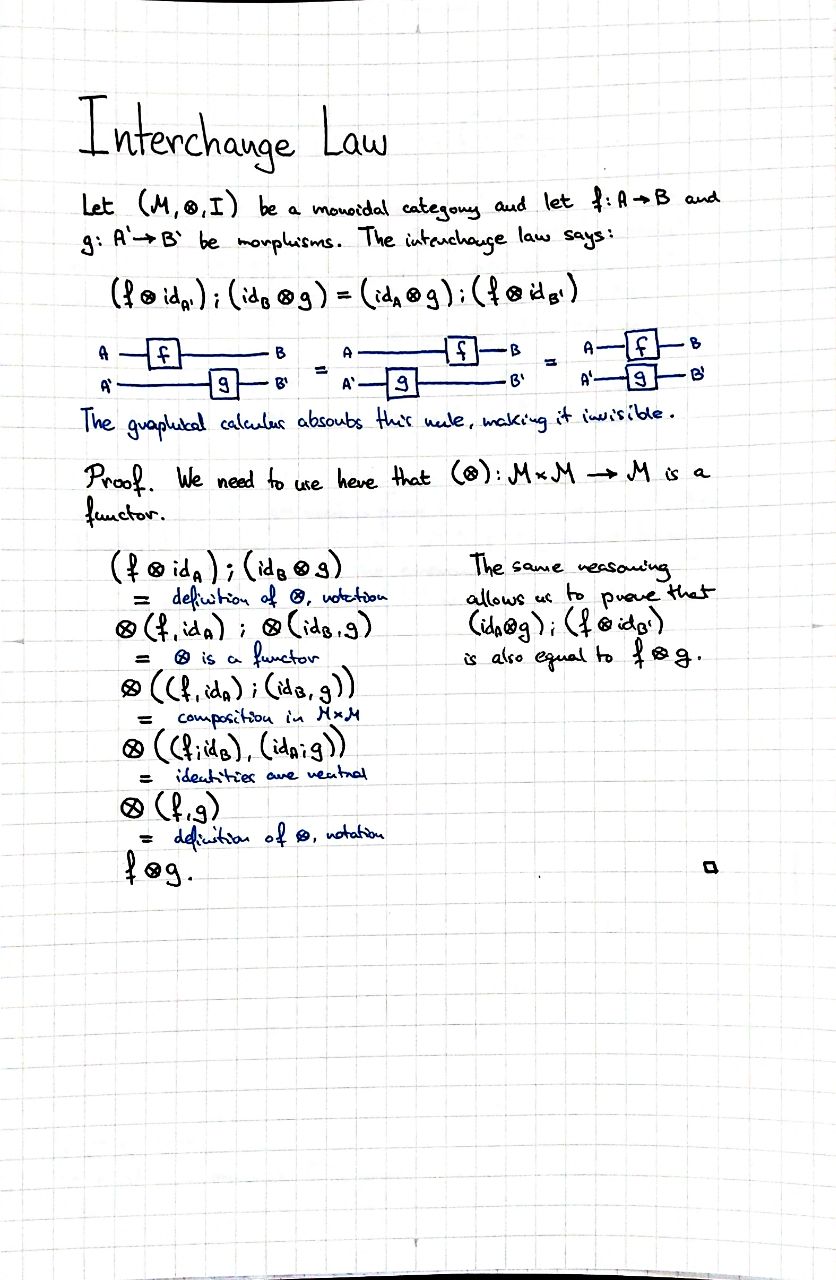 Interchange Law
Let (M, ⊗, I) be a monoidal category and let f: A → B and
g: A' → B' be morphisms. The interchange law says:
(f ⊗ id_A'); (id_B ⊗ g) = (id_A ⊗ g); (f ⊗ id_B')
A f B = A f B = A f B
A' g B' A' g B' A' g B'
The graphical calculus absorbs this rule, making it invisible.
Proof. We need to use here that (⊗): M × M → M is a
functor.
(f ⊗ id_A); (id_B ⊗ g)
= definition of ⊗, notation
⊗(f, id_A) ; ⊗(id_B, g)
= ⊗ is a functor
⊗((f, id_A); (id_B, g))
= composition in M×M
⊗((f; id_B), (id_A; g))
= identities are neutral
⊗(f, g)
= definition of ⊗, notation
f ⊗ g.
The same reasoning
allows us to prove that
(id_A ⊗ g); (f ⊗ id_B')
is also equal to f ⊗ g.
□